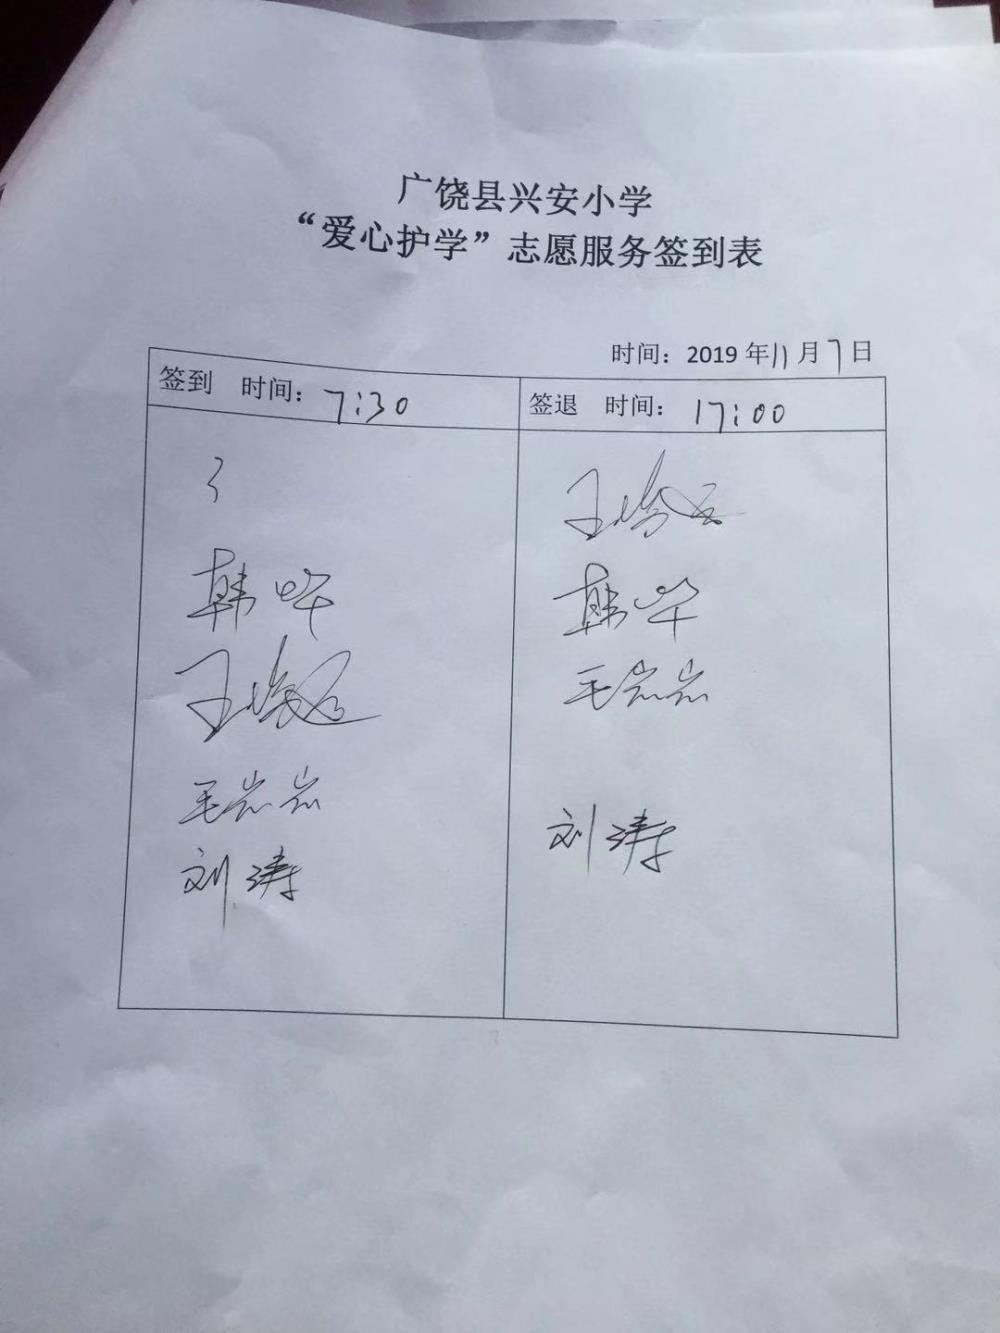 广饶县兴安小学
“爱心护学”志愿服务签到表
时间：2019年11月7日
签到 时间：7:30
签退 时间：17:00
韩
王
毛岩岩
刘涛
王
韩
毛岩岩
刘涛